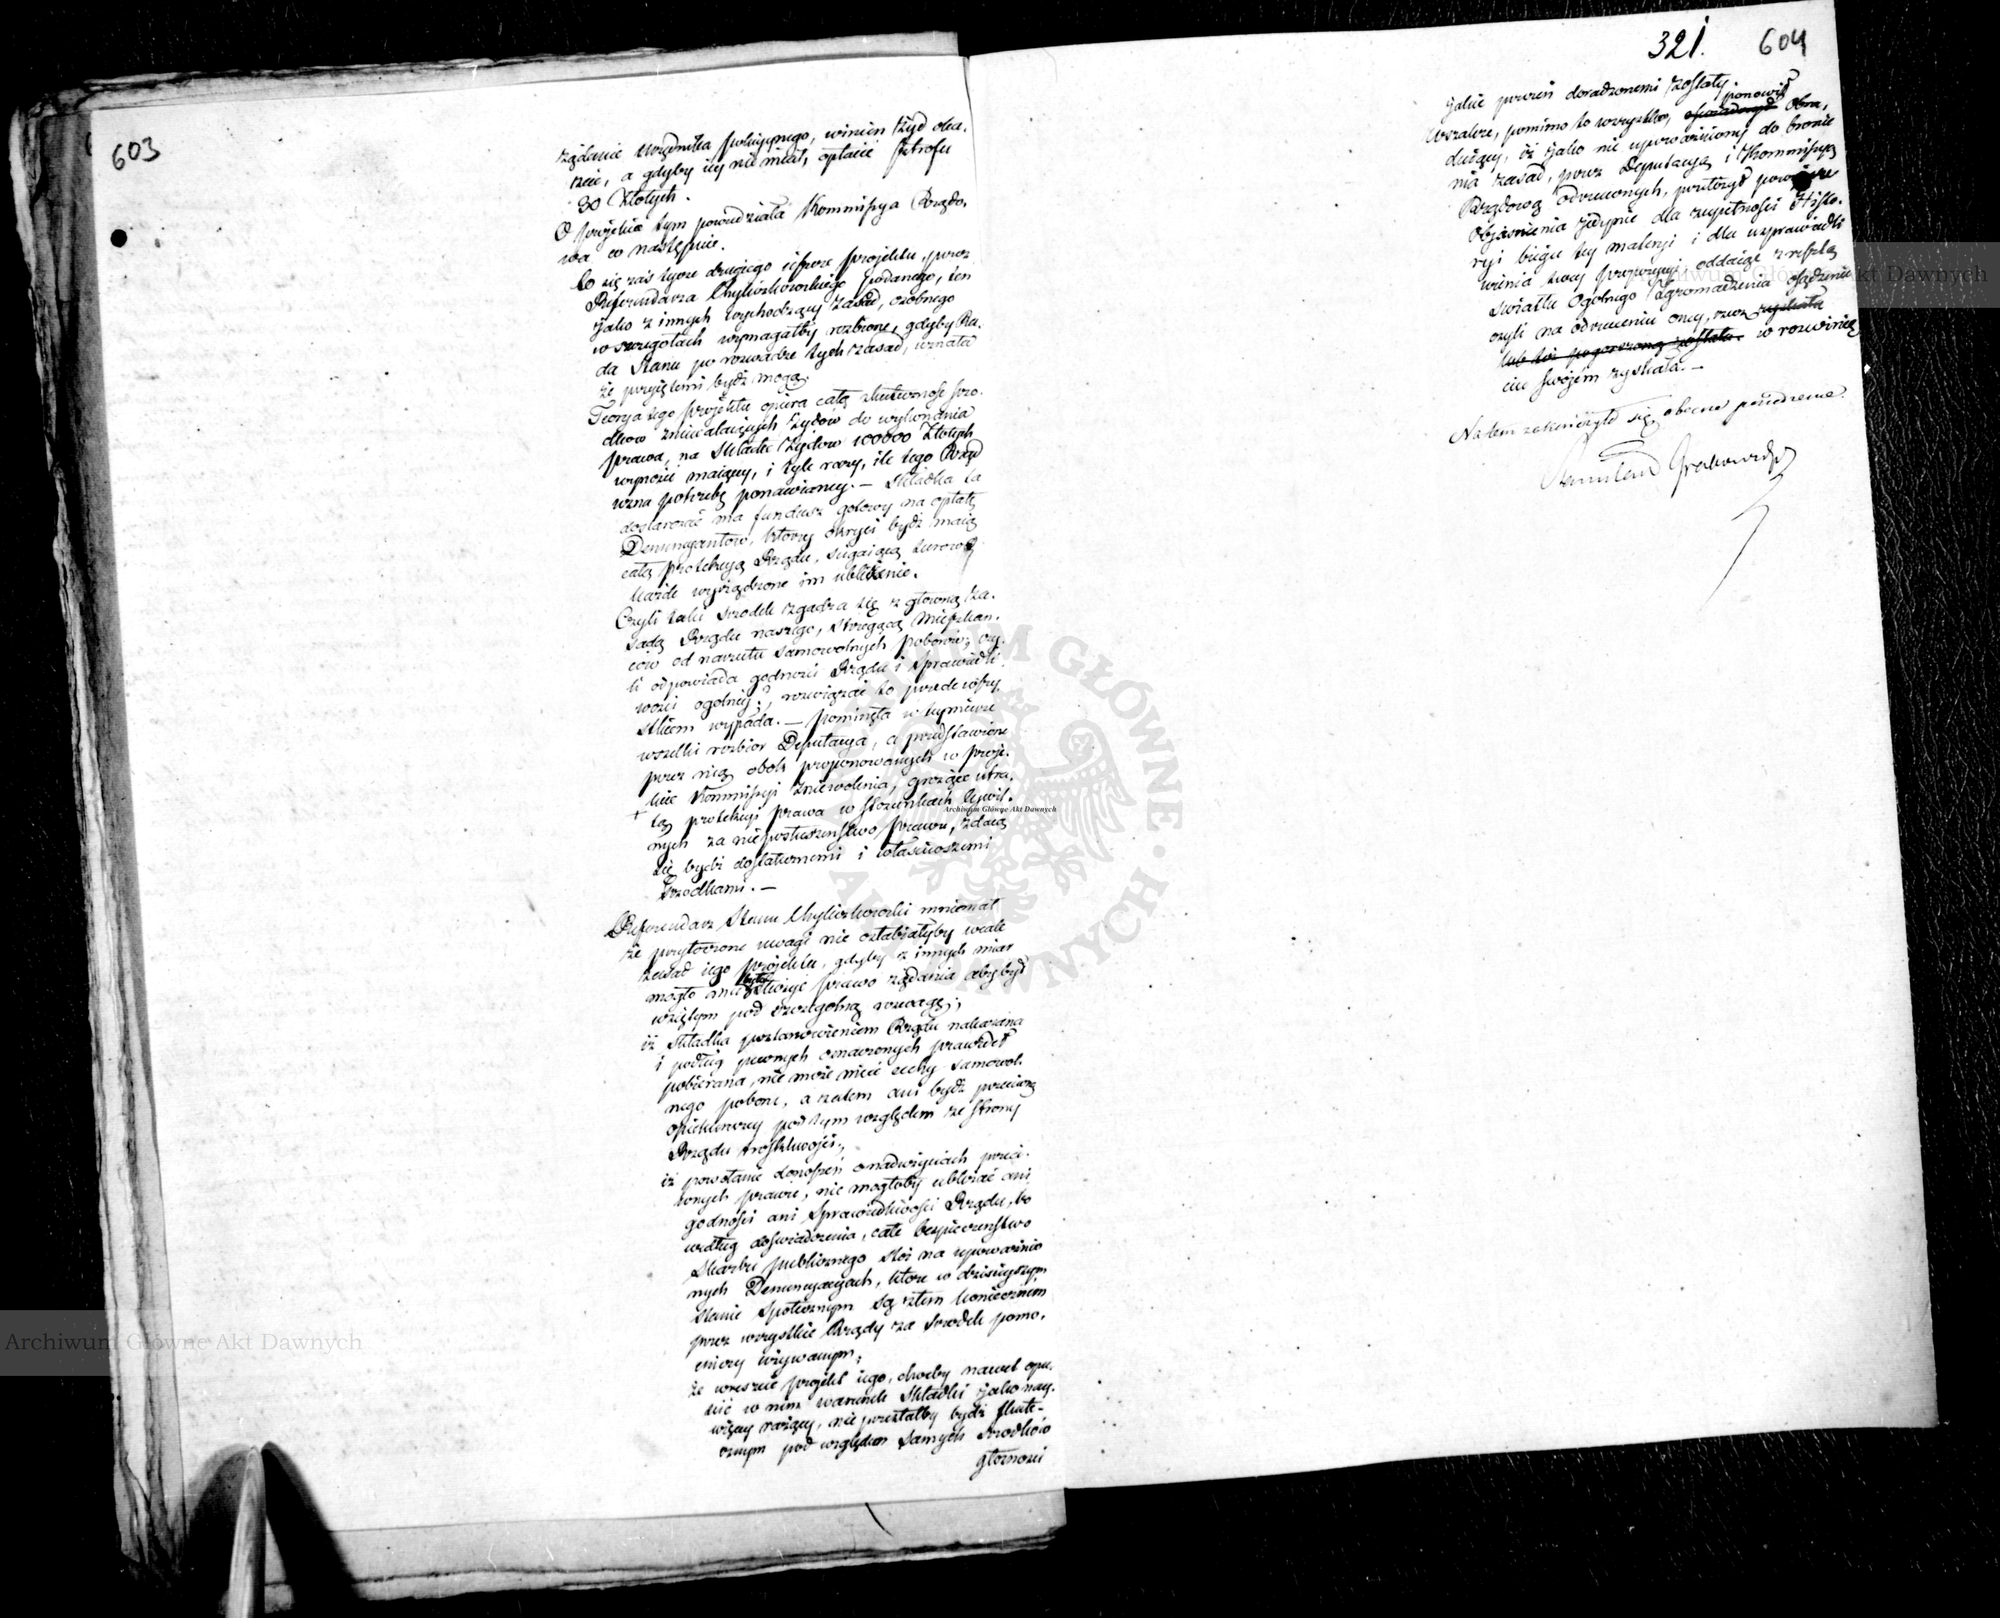 603
żądanie urzędnika policyjnego, winien Żyd oka.
zać, a gdyby jej nie miał, opłacić sztrofu
30 Złotych.
O projekcie tym powiedziała Kommissya Rządo.
wa co następuie.
Co się zaś tycze drugiego projektu, przez
Referendarza Chyliczkowskiego podanego, ten
jako z innych wychodzący zasad, osobnego
w szczegółach wymagałby rozbioru, gdyby Ra.
da Stanu po rozwadze tych zasad, uznała
że przyjętemi bydź mogą.
Teorya tego projektu opiera całą skuteczność śro.
dków zniewalaiących Żydów do wykonania
prawa, na składce Żydów 100000 Złotych
wynosić maiącey, i tyle razy, ile tego Rząd
uzna potrzebę ponawianey. — Składka ta
dostarczać ma fundusz gotowy na opłatę
Denuncyantów, którzy okryci bydź maią
całą protekcyą Rządu, ścigaiącą surowo
każde wyrządzone im ubliżenie.
Czyli taki środek zgadza się z główną za.
sadą Rządu naszego, strzegącą Mieszkan.
ców od narzutu samowolnych poborów, czy.
li odpowiada godności Rządu i sprawiedli.
wości ogólney?, rozwiązać to przedewszy.
stkiem wypada. — pominęła w tey mierze
wszelki rozbiór Deputacya, a przedstawione
przez nią obok proponowanych w proje.
kcie Kommissyi zniewolenia, grożące utra.
+ tą protekcyi prawa w stosunkach Cywil.
nych za nieposłuszeństwo prawu, zdaią
się bydź dostatecznemi i właściwszemi
środkami. —
Referendarz Stanu Chyliczkowski mniemał
że przytoczone uwagi nie osłabiałyby wcale
zasad iego projektu, gdyby z innych miar
mogło mieć prawo żądania aby był
wziętym pod szczególną rozwagę;
iż składka postanowieniem Rządu nakazana
i podług pewnych oznaczonych prawideł
pobierana, nie może mieć cechy samowol.
nego poboru, a zatem ani bydź przeciwną
opiekuńczey pod tym względem ze strony
Rządu troskliwości.,
iż powołanie doniesień o nadużyciach przeci.
wnych prawu, nie mogłoby ubliżać ani
godności ani sprawiedliwości Rządu, bo
według doświadczenia, całe bezpieczeństwo
Skarbu publicznego stoi na upoważnio
nych Denuncyacyach, które w dzisieyszym
stanie społecznym są złem koniecznem
przez wszystkie Rządy za środek pomo.
cniczy używanym;
że wreszcie projekt iego, choćby nawet opu.
ścić w nim warunek składki jako nay.
więcey rażący, nie przestałby bydź skute-
cznym pod względem samych środków
głowności
321. 604
jakie przezeń doradzonemi zostały
ponowił
Wszakże, pomimo to wszystko, oświadczył
iż jako nie upoważniony do bronie
nia zasad, przez Deputacyą i Kommissyą
Rządową odrzuconych, przełożył powyższe
Objaśnienia jedynie dla zupełności Histo.
ryi biegu tey materyi i dla usprawiedli
wienia swey propozycyi oddaiąc zresztą
światłu Ogólnego Zgromadzenia osądzenie
czyli na odrzuceniu oney, rzecz zyskała
lub też pogorszoną została. w rozwinię
ciu swojem zyskała. —
Na tem zakończyło się obecne posiedzenie.
Stanisław Grabowski
Archiwum Główne Akt Dawnych
Archiwum Główne Akt Dawnych
Archiwum Główne Akt Dawnych
ARCHIWUM GŁÓWNE · AKT DAWNYCH ·